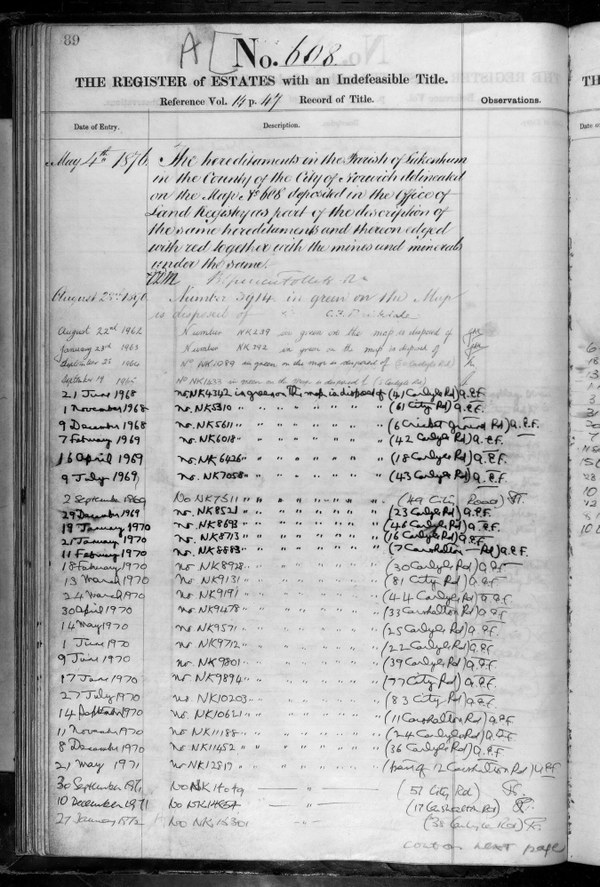 89
No. 608
THE REGISTER of ESTATES with an Indefeasible Title.
Reference Vol. 14 p. 47 Record of Title.
Observations.
Date of Entry.
Description.
May 4th 1876 The hereditaments in the Parish of Lakenham
in the County of the City of Norwich delineated
on the Map No 608 deposited in the Office of
Land Registry as part of the description of
the same hereditaments and thereon edged
with red together with the mines and minerals
under the same.
August 1876 Number 3914 in green on the Map
is disposed of
August 22nd 1962 Number NK239 in green on the map is disposed of
January 23rd 1963 Number NK392 in green on the map is disposed of
September No NK1089 in green on the map is disposed of
September 19 No NK1633 in green on the Map is disposed of (Carlyle Rd)
21 June 1968 no. NK4342 in green on the map is disposed of (41 Carlyle Rd) a.P.F.
1 November 1968 no. NK5310 " " " " " (61 City Rd) a.P.F.
9 December 1968 no. NK5611 " " " " " (6 Cricket Ground Rd) a.P.F.
7 February 1969 no. NK6018 " " " " " (42 Carlyle Rd) a.P.F.
16 April 1969 no. NK6426 " " " " " (18 Carlyle Rd) a.P.F.
9 July 1969 no. NK7058 " " " " " (43 Carlyle Rd) a.P.F.
2 September 1969 No NK7511 " " " " " (49 City Road)
29 December 1969 no. NK8521 " " " " " (23 Carlyle Rd) a.P.F.
19 January 1970 no. NK8693 " " " " " (46 Carlyle Rd) a.P.F.
21 January 1970 no. NK8713 " " " " " (16 Carlyle Rd) a.P.F.
11 February 1970 no. NK8883 " " " " " (7 Carshalton Rd) a.P.F.
18 February 1970 no. NK8928 " " " " " (30 Carlyle Rd) a.P.F.
13 March 1970 no. NK9131 " " " " " (81 City Rd) a.P.F.
24 March 1970 no. NK9191 " " " " " (44 Carlyle Rd) a.P.F.
30 April 1970 no. NK9478 " " " " " (33 Carshalton Rd) a.P.F.
14 May 1970 no. NK9571 " " " " " (25 Carlyle Rd) a.P.F.
1 June 1970 no. NK9712 " " " " " (22 Carlyle Rd) a.P.F.
9 June 1970 no. NK9801 " " " " " (39 Carlyle Rd) a.P.F.
17 June 1970 no. NK9894 " " " " " (77 City Rd) a.P.F.
27 July 1970 no. NK10203 " " " " " (83 City Rd) a.P.F.
14 September 1970 no. NK10621 " " " " " (11 Carshalton Rd) a.P.F.
11 November 1970 no. NK11188 " " " " " (24 Carlyle Rd) a.P.F.
8 December 1970 no. NK11452 " " " " " (36 Carlyle Rd) a.P.F.
21 May 1971 no. NK12817 " " " " " (part of 12 Carshalton Rd) a.P.F.
30 September 1971 No NK14049 " (51 City Rd)
10 December 1971 No (17 Carshalton Rd)
27 January 1972 No (38 Carlyle Rd)
cont on next page